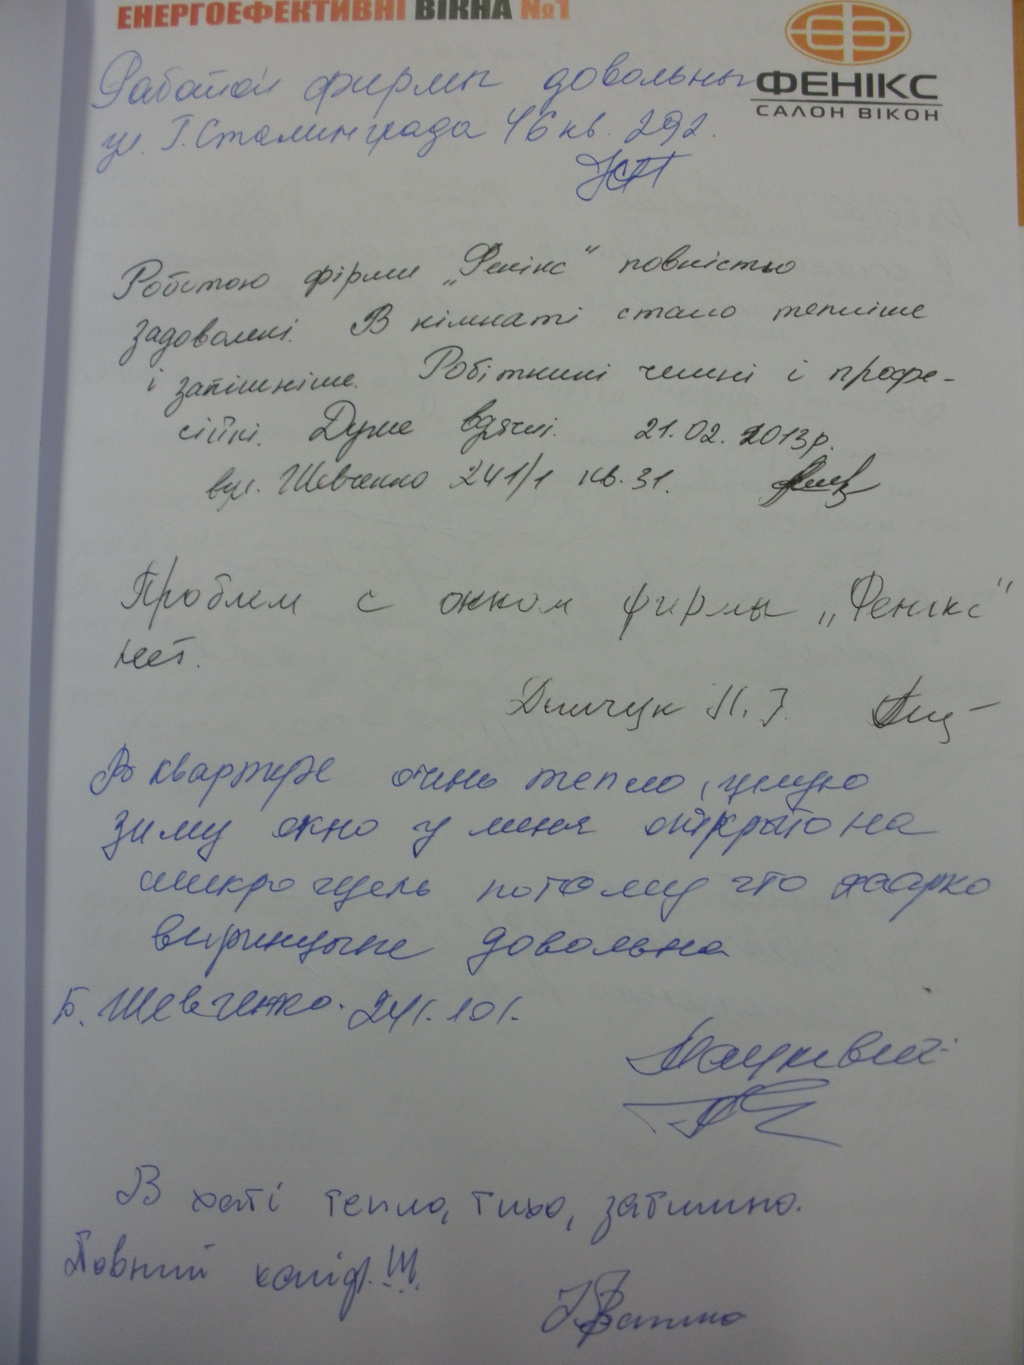 ЕНЕРГОЕФЕКТИВНІ ВІКНА №1
ФЕНІКС
САЛОН ВІКОН
Работой фирмы довольны
ул. Г. Сталинграда 46 кв. 292.
Роботою фірми „Фенікс“ повністю
задоволені. В кімнаті стало тепліше
і затишніше. Робітники чемні і профе-
сійні. Дуже вдячні. 21.02.2013р.
вул. Шевченко 241/1 кв. 31.
Проблем с окном фирмы „Фенікс“
нет.
Демчук Н. І.
В квартире очень тепло, целую
зиму окно у меня открыто на
микрощель потому что жарко
довольна
Б. Шевченко. 241. 101.
В хаті тепло, тихо, затишно.
Повний кайф!!!